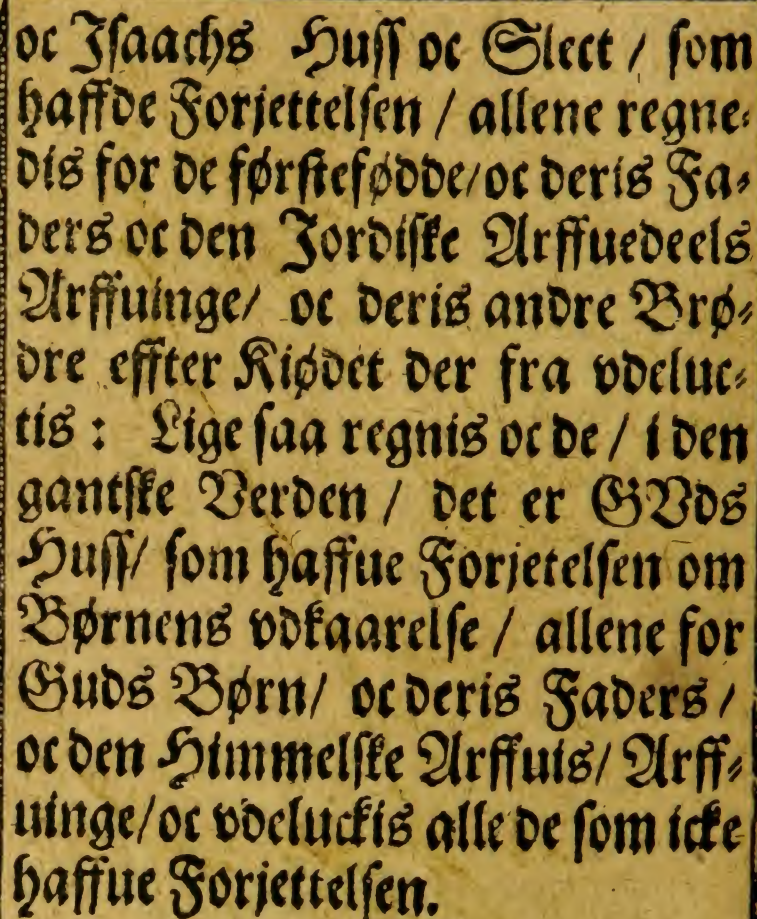 oc Iſaachs Huſſ oc Slect / ſom
haffde Forjettelſen / allene regne⸗
dis for de førſtefødde/ oc deris Fa⸗
ders oc den Jordiſke Arffuedeels
Arffuinge/ oc deris andre Brø⸗
dre effter Kiødet der fra vdeluc⸗
tis : Lige ſaa regnis oc de / i den
gantſke Verden / det er GVds
Huſſ/ ſom haffue Forjetelſen om
Børnens vdkaarelſe / allene for
Guds Børn/ oc deris Faders /
oc den Himmelſke Arffuis/ Arff⸗
uinge/ oc vdeluckis alle de ſom icke
haffue Forjettelſen.